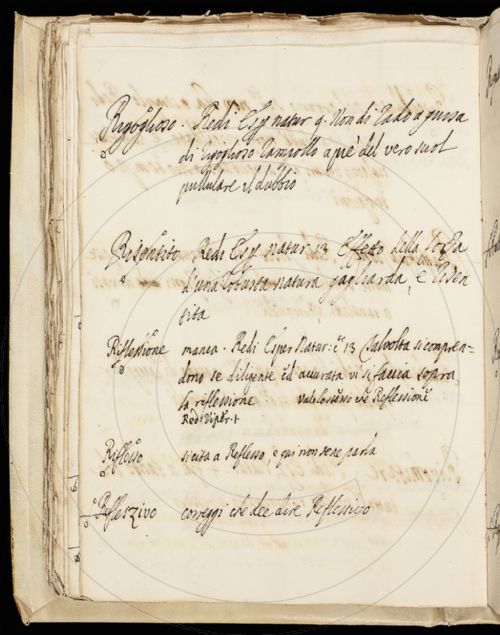 Rigoglioso. Redi Esp natur 9. Non di rado a guisa
di rigoglioso rampollo a piè del vero suol
pullulare il dubbio
Risentito Redi Esp natur 13 Effetto della forza
d'una robusta natura gagliarda, e risen
tita
Riflessione manca. Redi Esper Natur: 13 Talvolta si compren=
dono se diligente ed accurata vi si faccia sopra
la riflessione vale lo stesso che Reflessione
Redi Viper. 1
Riflesso si cita a Reflesso e qui non se ne parla
Riflessivo correggi che dee dire Reflessivo